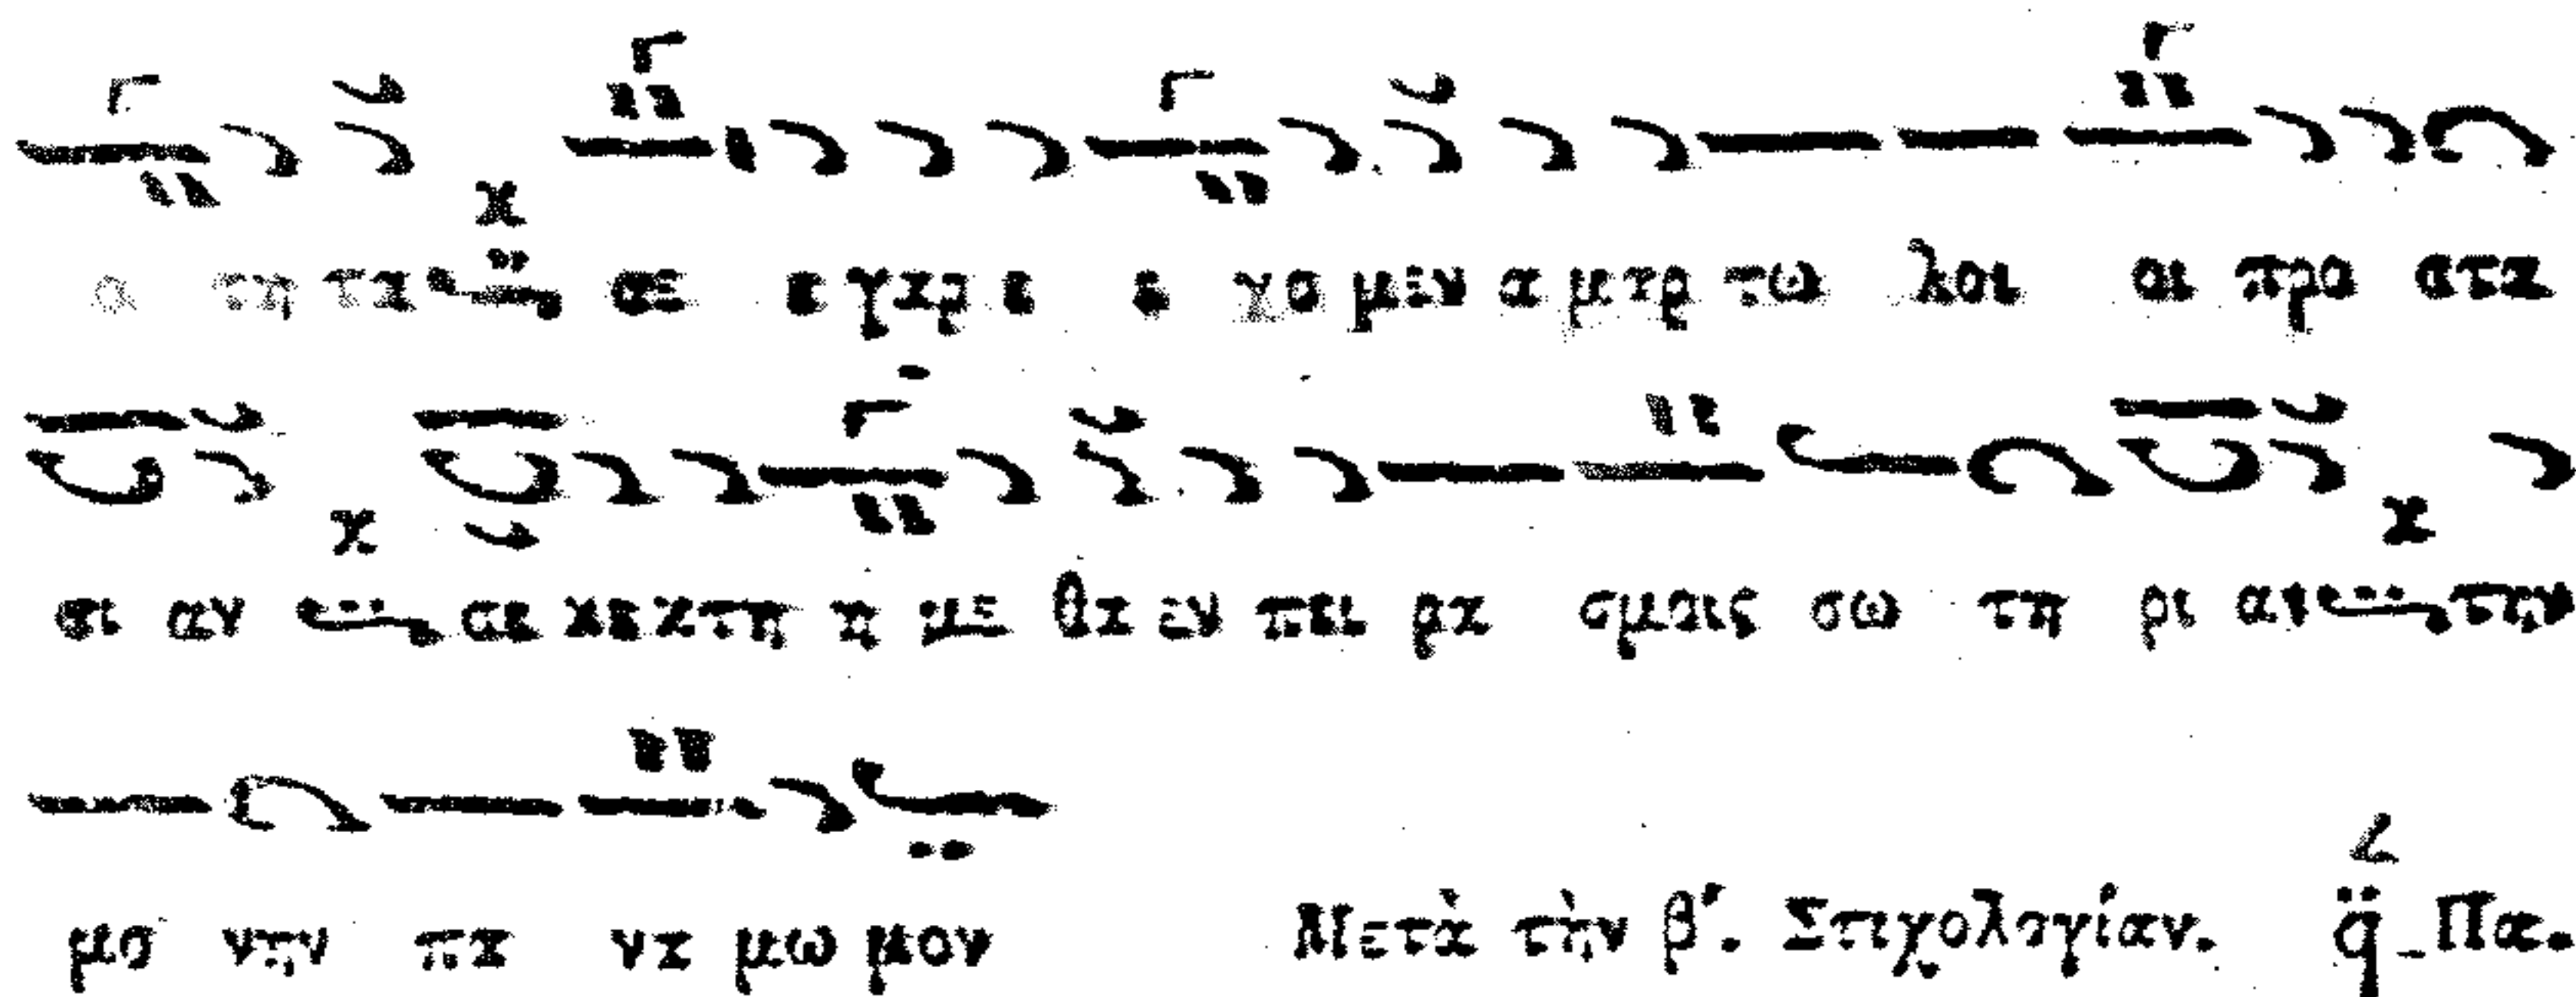 α τη τα σε ε γαρ ε ε χο μεν α μαρ τω λοι οι προ στα
σι αν σε κε κτη η με θα εν πει ρα σμοις σω τη ρι αν την
μο νην πα να μω μον Μετὰ τὴν β΄. Στιχολογίαν. Πα.